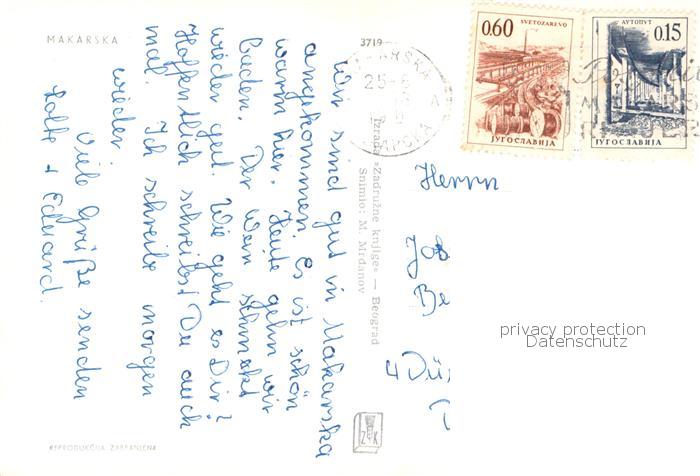 MAKARSKA
3719
Wir sind gut in Makarska
angekommen. Es ist schön
warm hier. Heute gehn wir
baden. Der Wein schmekt
wieder gut. Wie geht es Dir?
Hoffentlich schreibst Du auch
mal. Ich schreibe morgen
wieder.
Viele Grüße senden
Lotte + Eduard.
REPRODUKCIJA ZABRANJENA
Izrada »Zadružne knjige« — Beograd
Snimio: M. Mrđanov
ZK
0.60
SVETOZAREVO
ЈУГОСЛАВИЈА
АУТОПУТ
0.15
ЈУГОСЛАВИЈА
MAKARSKA
25-6
Herrn
Job
Be
4 Dü
privacy protection
Datenschutz